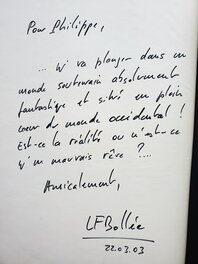 Pour Philippe,
... qui va plonger dans un
monde souterrain absolument
fantastique et situé en plein
coeur du monde occidental !
Est-ce la réalité ou n'est-ce
qu'un mauvais rêve ?...
Amicalement,
LFBollée
22.03.03